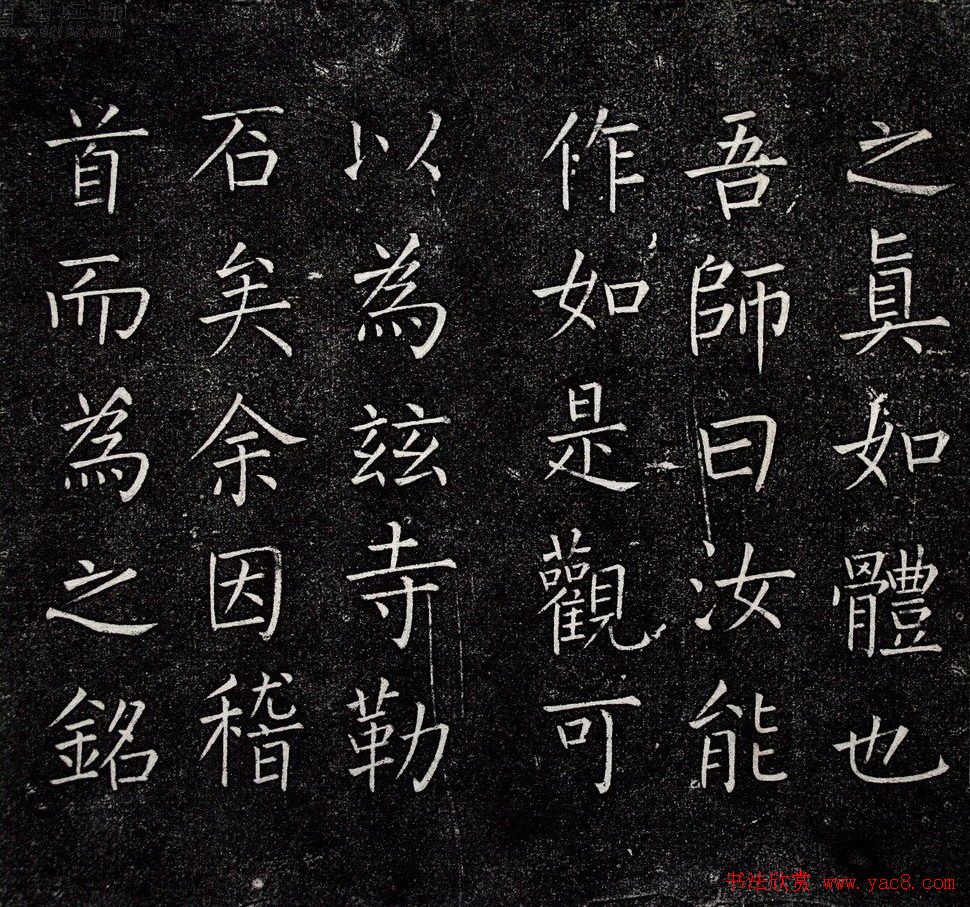 之真如體也
吾師曰汝能
作如是觀可
以為茲寺勒
石矣余因稽
首而為之銘
书法欣赏 www.yac8.com